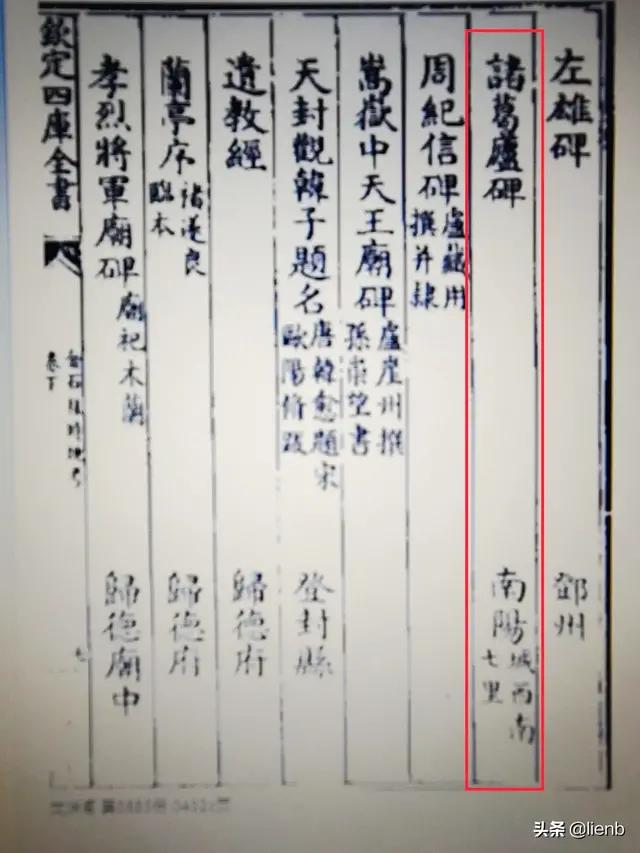 左雄碑 鄧州
諸葛廬碑 南陽 城西南七里
周紀信碑 盧藏用撰并隸
嵩嶽中天王廟碑 盧崖州撰孫崇望書
天封觀韓子題名 唐韓愈題宋歐陽脩跋 登封縣
遺教經 歸德府
蘭亭序 褚遂良臨本 歸德府
孝烈將軍廟碑 廟祀木蘭 歸德廟中
欽定四庫全書 金石林時地考 卷下
头条 @lienb